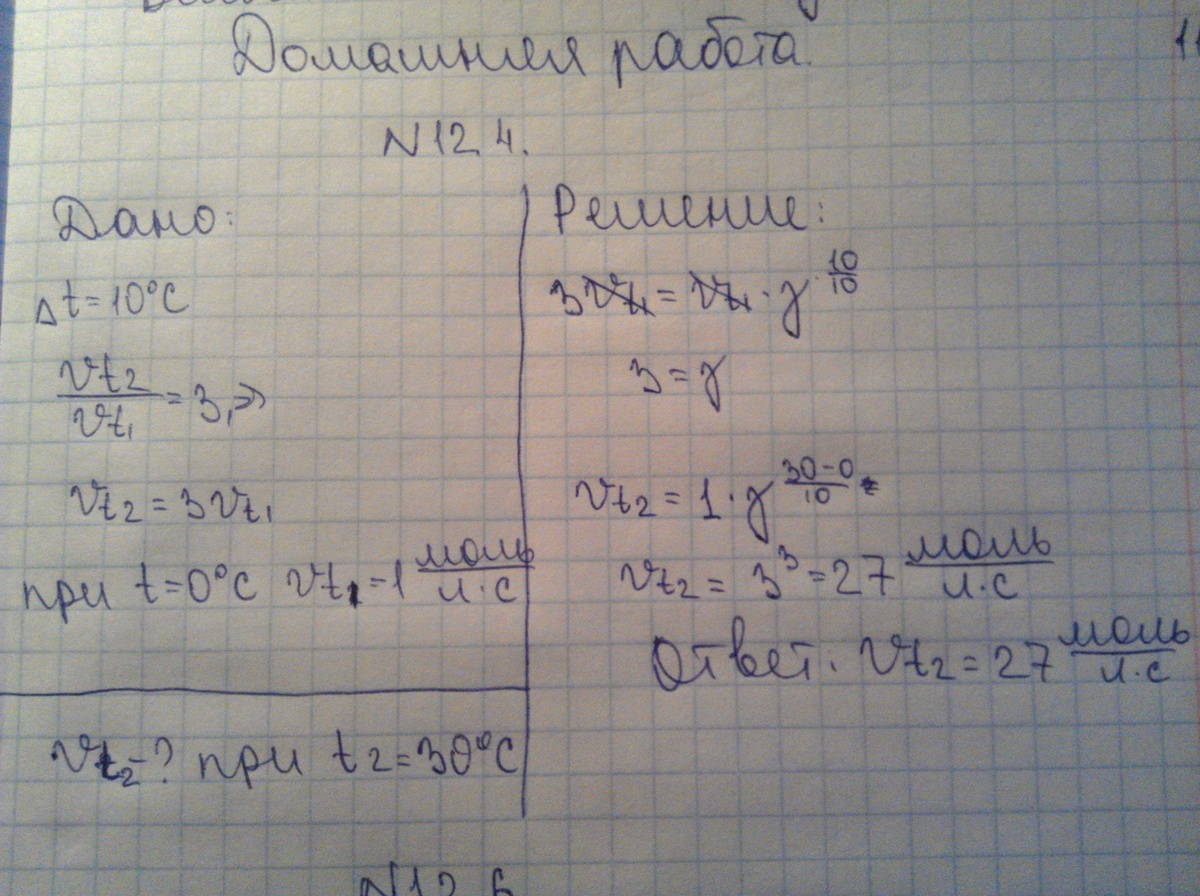 Домашняя работа.
11
N 12. 4.
Дано:
Δt=10°C
vt2/vt1 = 3, =>
vt2 = 3vt1
при t=0°C vt1=1 моль/л·с
vt2-? при t2=30°C
Решение:
3vt1 = vt1 · γ^10/10
3 = γ
vt2 = 1 · γ^30-0/10
vt2 = 3^3 = 27 моль/л·с
Ответ: vt2 = 27 моль/л·с
N12 6